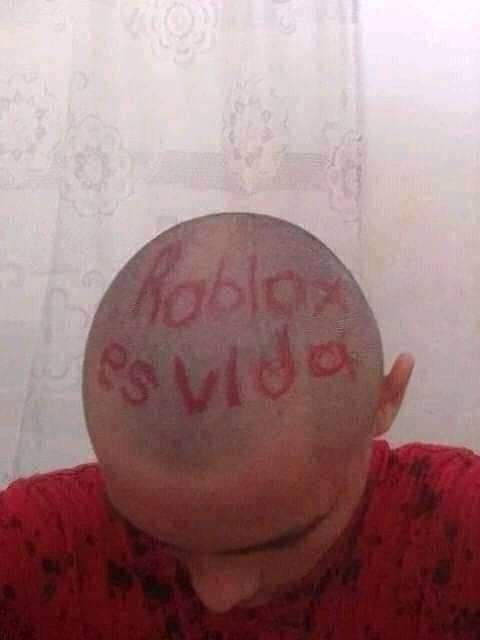 Roblox
es vida